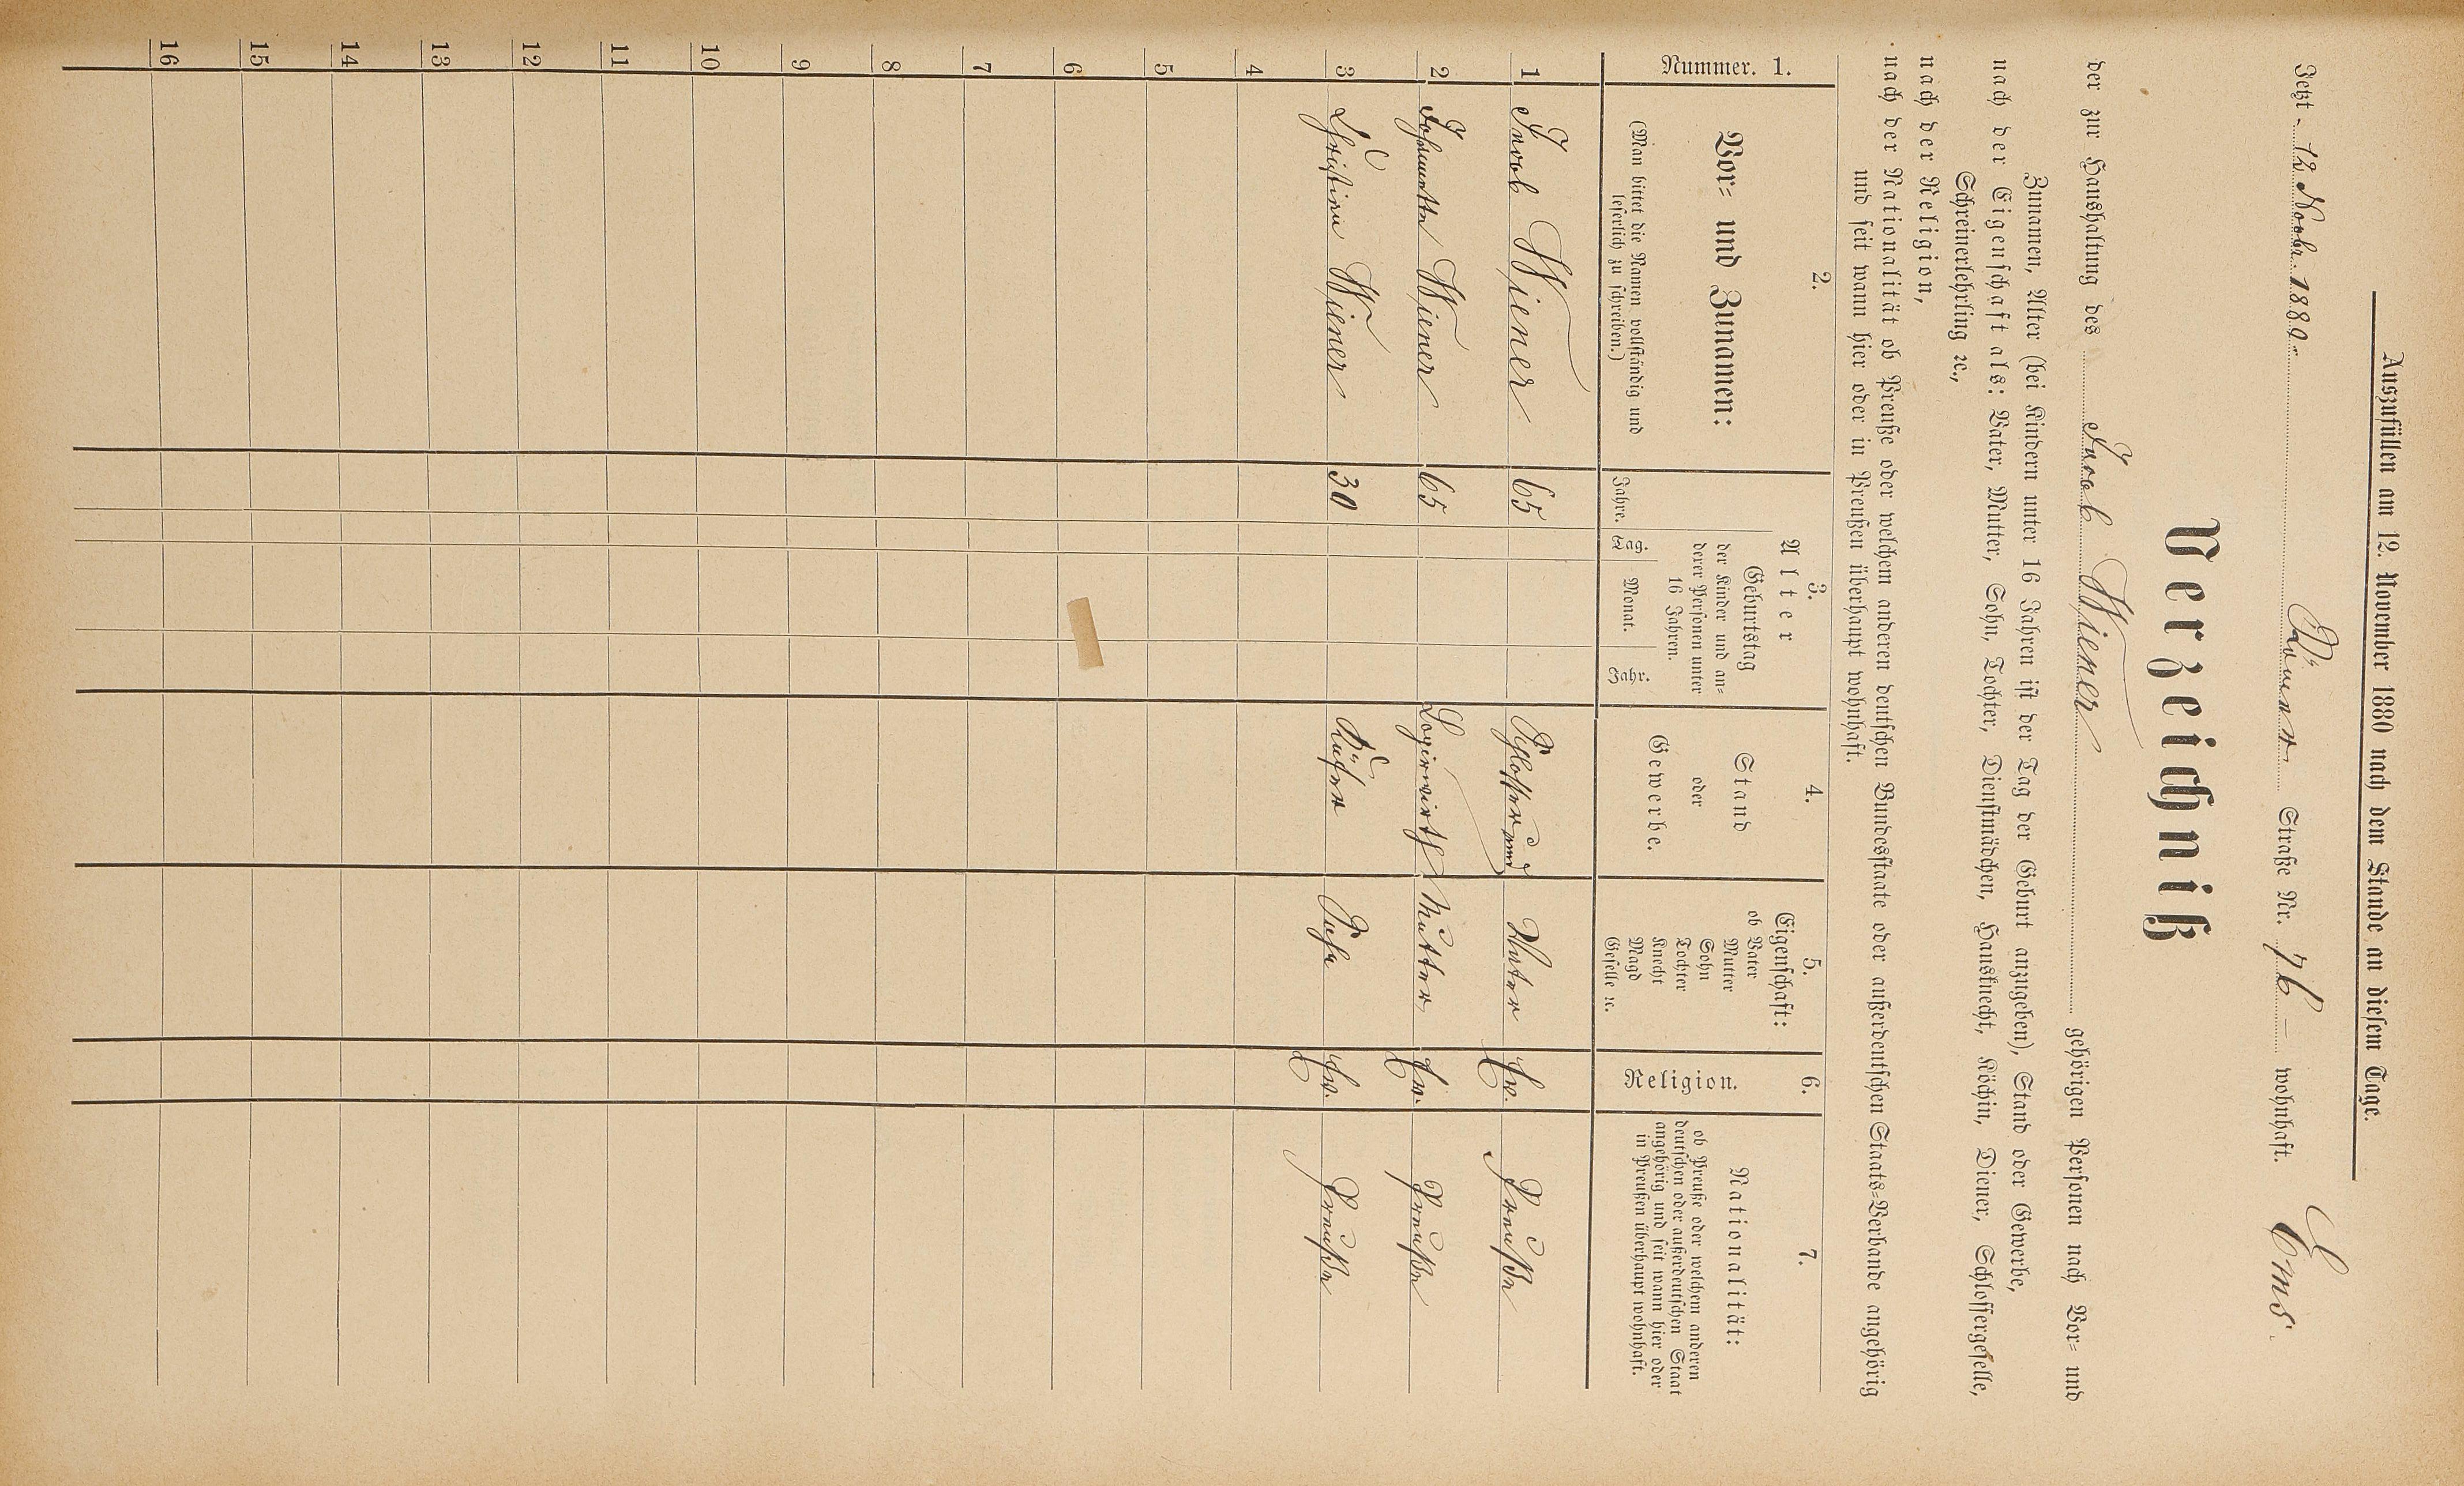 Auszufüllen am 12. November 1880 nach dem Stande an diesem Tage.
Jetzt 12 Novbr. 1880. Straße Nr. 76 wohnhaft. Ems.
Verzeichniß
der zur Haushaltung des Wiener gehörigen Personen nach Vor- und
Zunamen, Alter (bei Kindern unter 16 Jahren ist der Tag der Geburt anzugeben), Stand oder Gewerbe,
nach der Eigenschaft als: Vater, Mutter, Sohn, Tochter, Dienstmädchen, Hausknecht, Köchin, Diener, Schlossergeselle,
Schreinerlehrling ꝛc.,
nach der Religion,
nach der Nationalität ob Preuße oder welchem anderen deutschen Bundesstaate oder außerdeutschen Staats-Verbande angehörig
und seit wann hier oder in Preußen überhaupt wohnhaft.
Nummer. 1.
2.
Vor- und Zunamen:
(Man bittet die Namen vollständig und
leserlich zu schreiben.)
3.
Alter
Geburtstag
der Kinder und an-
derer Personen unter
16 Jahren.
Jahre.
Tag.
Monat.
Jahr.
4.
Stand
oder
Gewerbe.
5.
Eigenschaft:
ob Vater
Mutter
Sohn
Tochter
Knecht
Magd
Geselle ꝛc.
6.
Religion.
7.
Nationalität:
ob Preuße oder welchem anderen
deutschen oder außerdeutschen Staat
angehörig und seit wann hier oder
in Preußen überhaupt wohnhaft.
1 Wiener 65 Schlosser und Vater Ev. Preuße
2 Johannette Wiener 65 Logirwirth Mutter Ev. Preuße
3 Christian Wiener 30 Küfer Sohn Ev. Preuße
4
5
6
7
8
9
10
11
12
13
14
15
16